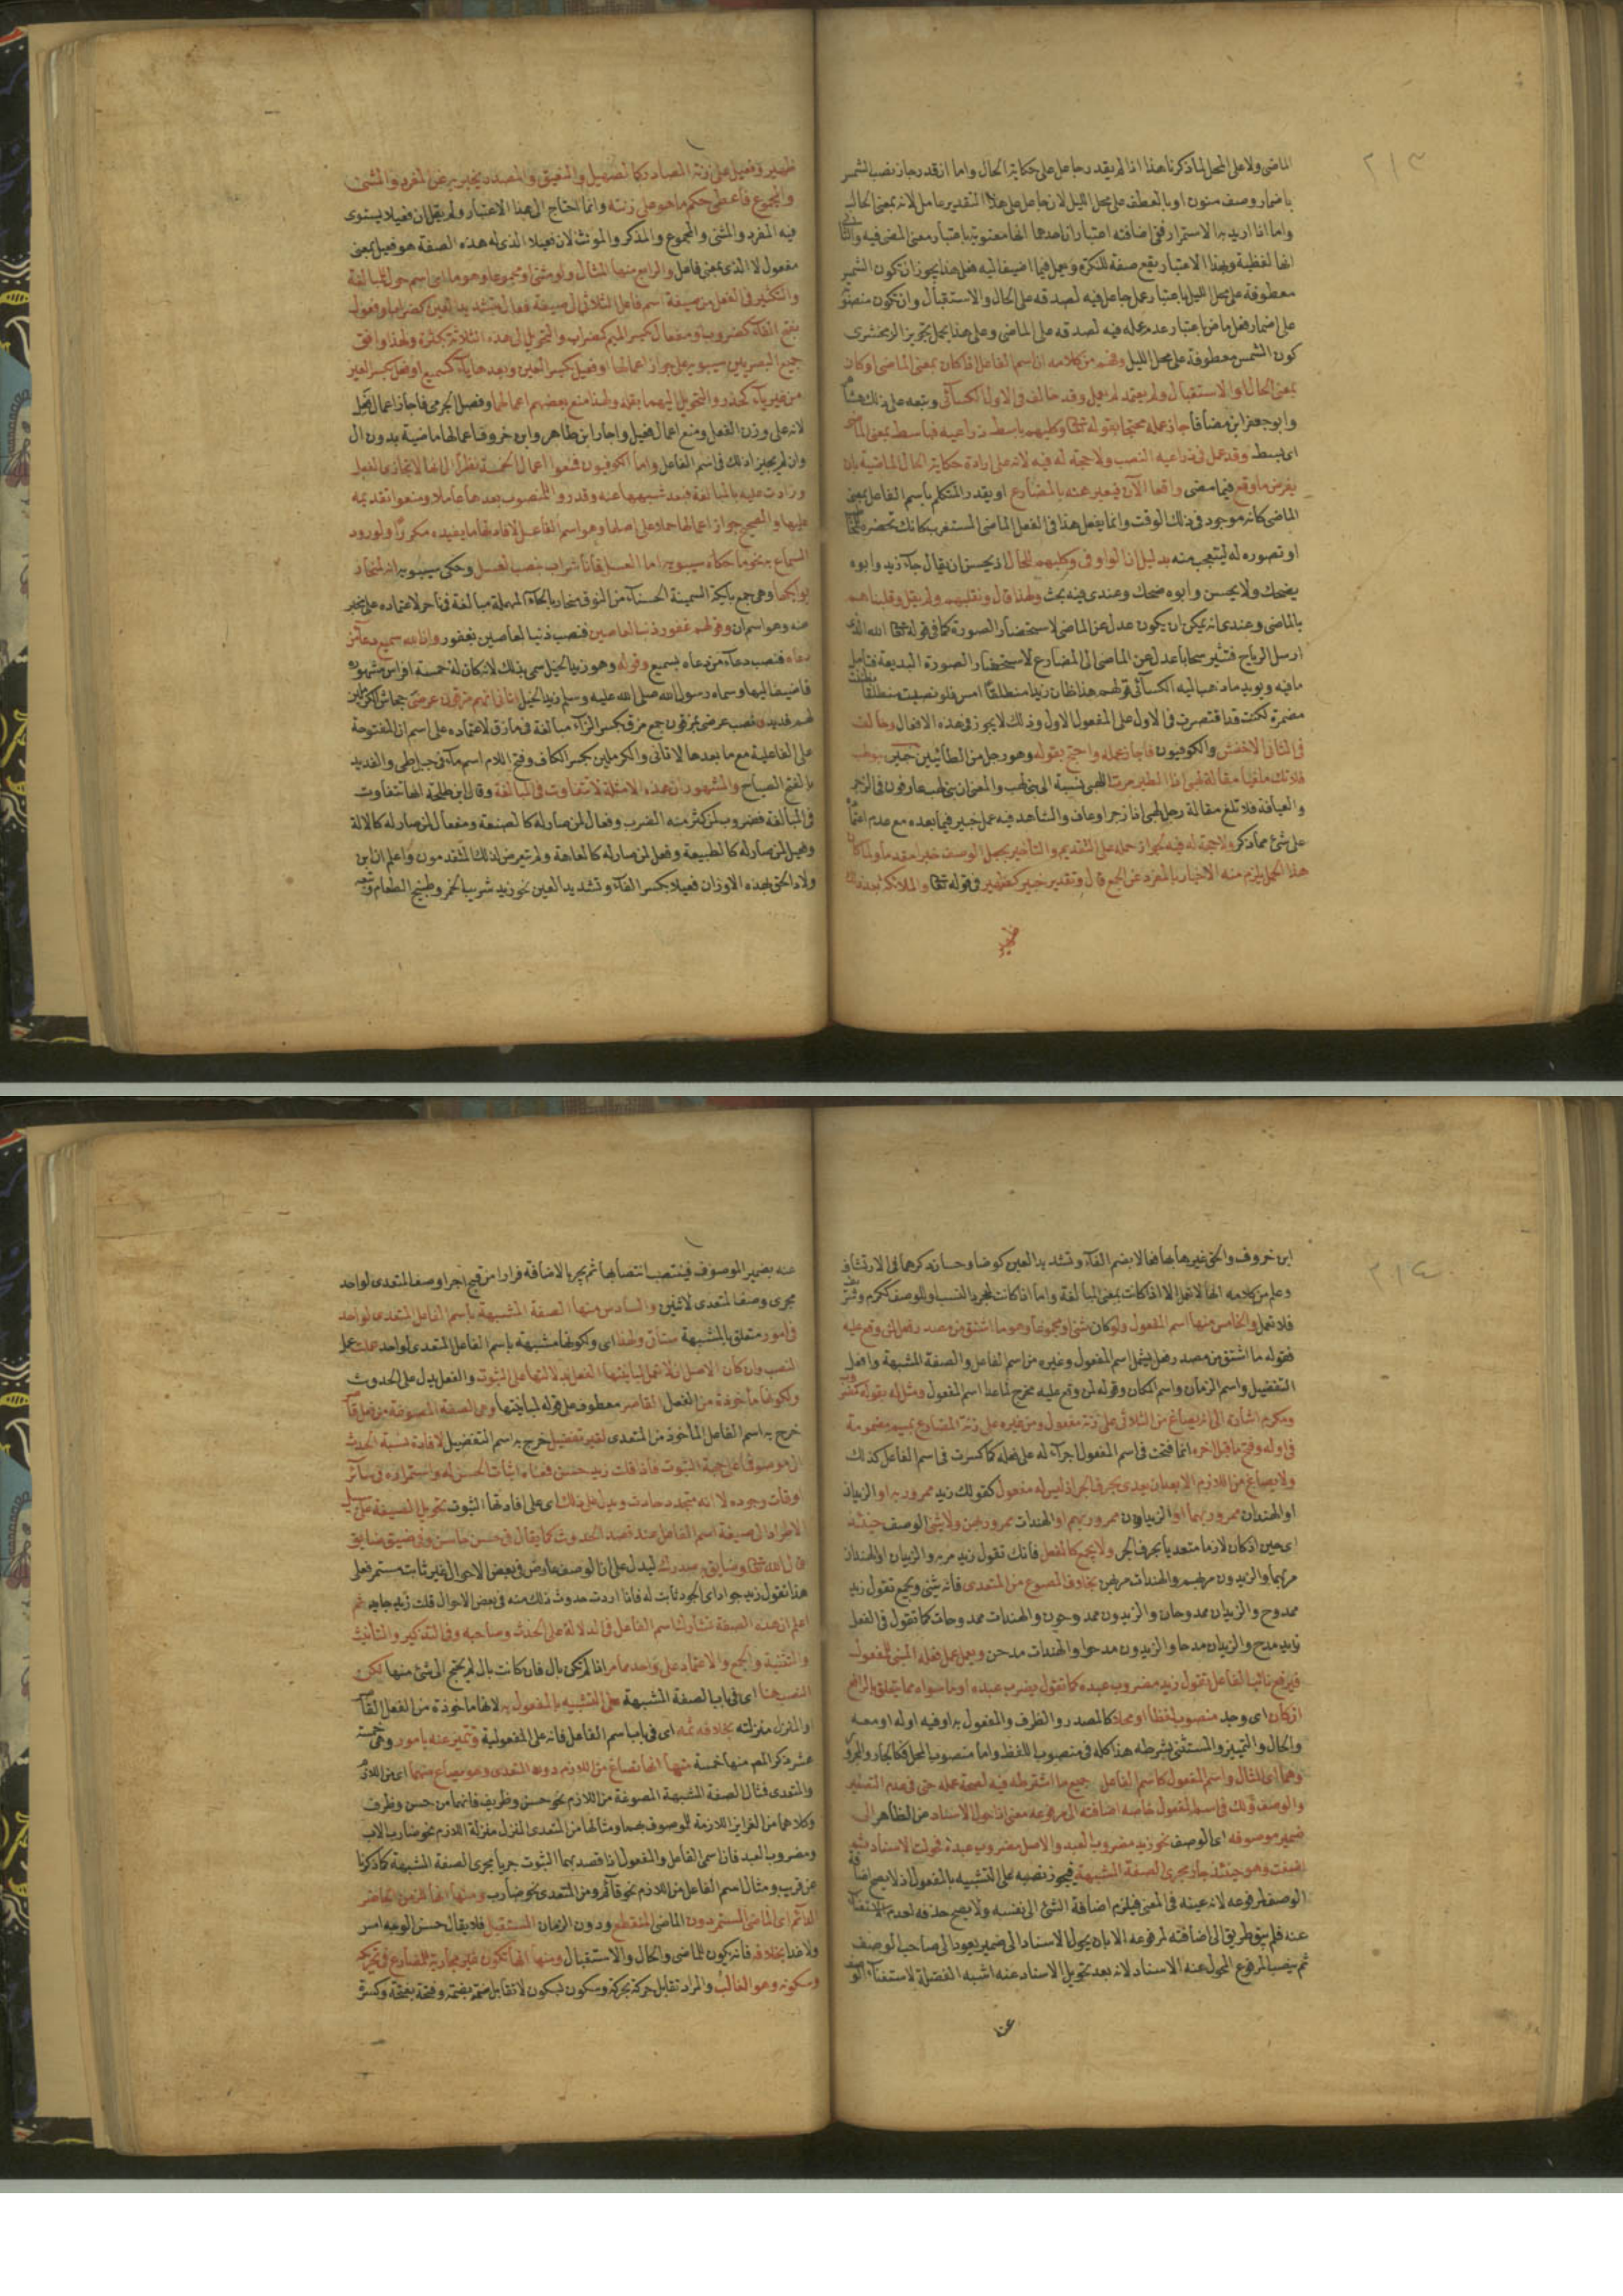 ٢١٣
الماضى ولا على المحل لما ذكرنا هذا اذا لم يقدر جاعل على حكاية الحال واما ان قدر جاز نصب الشمس
باضمار وصف منون او بالعطف على محل الليل لان جاعل على هذا التقدير عامل لانه بمعنى الحال
واما اذا اريد به الاستمرار ففى اضافته اعتباران احدهما انها معنوية باعتبار معنى المضى فيه والثانى
انها لفظية وبهذا الاعتبار يقع صفة للنكرة ويعمل فيما اضيف اليه فعلى هذا يجوز ان تكون الشمس
معطوفة على محل الليل باعتبار عمل جاعل فيه لصدقه على الحال والاستقبال وان تكون منصوبة
على اضمار فعل ماض باعتبار عدم عمله فيه لصدقه على الماضى وعلى هذا يحمل تجويز الزمخشرى
كون الشمس معطوفة على محل الليل وفهم من كلامه ان اسم الفاعل اذا كان بمعنى الماضى او كان
بمعنى الحال او الاستقبال ولم يعتمد لم يعمل وقد خالف فى الاول الكسائى وتبعه على ذلك هشام
وابو جعفر ابن مضاء فاجاز عمله محتجا بقوله تعالى وكلبهم باسط ذراعيه فباسط بمعنى الماضى
اى بسط وقد عمل فى ذراعيه النصب ولا حجة له فيه لانه على ارادة حكاية الحال الماضية بان
يفرض ما وقع فيما مضى واقعا الآن فيعبر عنه بالمضارع او يقدر المتكلم باسم الفاعل بمعنى
الماضى كانه موجود فى ذلك الوقت وانما يفعل هذا فى الفعل الماضى المستغرب كانك تحضره للمخاطب
او تصوره له ليتعجب منه بدليل ان الواو فى وكلبهم للحال اذ يحسن ان يقال جاء زيد وابوه
يضحك ولا يحسن وابوه ضحك وعندى فيه بحث ولهذا قال ونقلبهم ولم يقل وقلبناهم
بالماضى وعندى انه يمكن ان يكون عدل عن الماضى لاستحضار الصورة كما فى قوله تعالى الله الذى
ارسل الرياح فتثير سحابا عدل عن الماضى الى المضارع لاستحضار الصورة البديعة فتامل
ما فيه ويويد ما ذهب اليه الكسائى قولهم هذا ظان زيدا منطلقا امس فلو نصبت منطلقا
مضمرة لكنت قد اقتصرت فى الاول على المفعول الاول وذلك لا يجوز فى هذه الافعال وخالف
فى الثانى الاخفش والكوفيون فاجاز عمله واحتج بقوله وهو رجل من الطائيين خبير بنو لهب
فلا تك ملغيا مقالة لهبى اذا الطير مرت اللهبى نسبة الى بنى لهب والمعنى ان بنى لهب عارفون فى الزجر
والعيافة فلا تلغ مقالة رجل لهبى اذا زجر او عاف والشاهد فيه عمل خبير فيما بعده مع عدم اعتماده
على شئ مما ذكر ولا حجة له فيه لجواز حمله على التقديم والتاخير بجعل الوصف خبرا مقدما ولما كان
هذا الحمل يلزم منه الاخبار بالمفرد عن الجمع قال وتقدير خبير كظهير فى قوله تعالى والملائكة بعد ذلك
ظهير
ظهير وفعيل على زنة المصادر كالصهيل والنهيق والمصدر يخبر به عن المفرد والمثنى
والمجموع فاعطى حكم ما هو على زنته وانما احتاج الى هذا الاعتبار ولم يقل ان فعيلا يستوى
فيه المفرد والمثنى والمجموع والمذكر والمونث لان فعيلا الذى له هذه الصفة هو فعيل بمعنى
مفعول لا الذى بمعنى فاعل والرابع منها المثال ولو مثنى او مجموعا وهو ما اى اسم حول للمبالغة
والتكثير فى الفعل من صيغة اسم فاعل الثلاثى الى صيغة فعال بتشديد العين كضراب او فعول
بفتح الفاء كضروب او مفعال بكسر الميم كمضراب والتحويل الى هذه الثلاثة بكثرة ولهذا وافق
جميع البصريين سيبويه على جواز اعمالها او فعيل بكسر العين وبعدها ياء كسميع او فعل بكسر العين
من غير ياء كحذر والتحويل اليهما بقلة ولهذا منع بعضهم اعمالهما وفصل الجرمى فاجاز اعمال فعل
لانه على وزن الفعل ومنع اعمال فعيل واجاز ابن طاهر وابن خروف اعمالها ماضية بدون ال
وان لم يجيز اذلك فى اسم الفاعل واما الكوفيون فمنعوا اعمال الخمسة نظرا الى انها لا تجارى الفعل
وزادت عليه بالمبالغة فبعد شبهها عنه وقدروا للمنصوب بعدها عاملا ومنعوا تقديمه
عليها والصحيح جواز اعمالها حملا على اصلها وهو اسم الفاعل لافادتها ما يفيده مكررا ولورود
السماع به نحو ما حكاه سيبويه اما العسل فانا شراب بنصب العسل وحكى سيبويه انه لمنحار
بوائكها وهى جمع بائكة السمينة الحسناء من النوق منحار بالحاء المهملة مبالغة فى ناحر لاعتماده على مخبر
عنه وهو اسم ان وقولهم غفور ذنب العاصين فنصب ذنب العاصين بغفور وان الله سميع دعاء من
دعاه فنصب دعاء من دعاه بسميع وقوله وهو زيد الخيل سمى بذلك لانه كان له خمسة افراس مشهورة
فاضيف اليها وسماه رسول الله صلى الله عليه وسلم زيد الخير اتانى انهم مزقون عرضى جحاش الكرملين
لهم فديد فنصب عرضى بمزقون جمع مزق بكسر الزاء مبالغة فى مازق لاعتماده على اسم ان المفتوحة
على الفاعلية مع ما بعدها لاتانى والكرملين بكسر الكاف وفتح اللام اسم ماء فى جبل طى والفديد
بالفتح الصياح والمشهور ان هذه الامثلة لا تتفاوت فى المبالغة وقال ابن طلحة انها تتفاوت
فى المبالغة فضروب لمن كثر منه الضرب وفعال لمن صار له كالصنعة ومفعال لمن صار له كالالة
وفعيل لمن صار له كالطبيعة وفعل لمن صار له كالعاهة ولم يتعرض لذلك المتقدمون واعلم ان ابن
ولاد الحق بهذه الاوزان فعيلا بكسر الفاء وتشديد العين نحو زيد شريب الخمر وطبيخ الطعام وتبعه
٢١٤
ابن خروف والحق غيرهما بها فعالا بضم الفاء وتشديد العين كوضاء وحسان ذكرهما فى الارتشاف
وعلم من كلامه انها لا تعمل الا اذا كانت بمعنى المبالغة واما اذا كانت لمجرد النسب او للوصف ككرم وشرف
فلا تعمل والخامس منها اسم المفعول ولو كان مثنى او مجموعا وهو ما اشتق من مصدر فعل لمن وقع عليه
فقوله ما اشتق من مصدر فعل يشمل اسم المفعول وغيره من اسم الفاعل والصفة المشبهة وافعل
التفضيل واسم الزمان واسم المكان وقوله لمن وقع عليه مخرج لما عدا اسم المفعول ومثل له بقوله كمضروب
ومكرم اشارة الى انه يصاغ من الثلاثى على زنة مفعول ومن غيره على زنة المضارع بميم مضمومة
فى اوله وفتح ما قبل اخره انما فتحت فى اسم المفعول اجراء له على فعله كما كسرت فى اسم الفاعل كذلك
ولا يصاغ من اللازم الا بعد ان يعدى بحرف الجر اذ ليس له مفعول كقولك زيد ممرور به او الزيدان
او الهندان ممرور بهما او الزيدون ممرور بهم او الهندات ممرور بهن ولا يثنى الوصف حينئذ
اى حين اذ كان لازما متعديا بحرف الجر ولا يجمع كالفعل فانك تقول زيد مر به والزيدان او الهندان
مر بهما والزيدون مر بهم والهندات مر بهن بخلاف المصوغ من المتعدى فانه يثنى ويجمع تقول زيد
ممدوح والزيدان ممدوحان والزيدون ممدوحون والهندات ممدوحات كما تقول فى الفعل
زيد مدح والزيدان مدحا والزيدون مدحوا والهندات مدحن ويعمل عمل فعله المبنى للمفعول
فيرفع نائب الفاعل تقول زيد مضروب عبده كما تقول يضرب عبده او ما سواه مما يتعلق بالرافع
ان كان اى وجد منصوب لفظا او محلا كالمصدر والظرف والمفعول به او فيه او له او معه
والحال والتمييز والمستثنى بشرطه هذا كله فى منصوب اللفظ واما منصوب المحل فكالجار والمجرور
وهما اى المثال واسم المفعول كاسم الفاعل جميع ما اشترط فيه لصحة عمله حتى فى عدم التصغير
والوصف ولك فى اسم المفعول خاصه اضافته الى مرفوعه معنى اذا حول الاسناد من الظاهر الى
ضمير موصوفه اى الوصف نحو زيد مضروب العبد والاصل مضروب عبده فحولت الاسناد ثم
اضفت وهو حينئذ جار مجرى الصفة المشبهة فيجوز نصبه على التشبيه بالمفعول اذ لا يصح اضافة
الوصف لمرفوعه لانه عينه فى المعنى فيلزم اضافة الشئ الى نفسه ولا يصح حذفه لعدم الاستغناء
عنه فلم يبق طريق الى اضافته لمرفوعه الا بان يحول الاسناد الى ضمير يعود الى صاحب الوصف
ثم ينصب المرفوع المحول عنه الاسناد لانه بعد تحويل الاسناد عنه اشبه الفضلة لاستغناء الوصف
عنه
عنه بضمير الموصوف فينتصب انتصابها ثم يجر بالاضافة فرارا من قبح اجر اوصف المتعدى لواحد
مجرى وصف المتعدى لاثنين والسادس منها الصفة المشبهة باسم الفاعل المتعدى لواحد
فى امور متعلق بالمشبهة ستأتى ولهذا اى ولكونها مشبهة باسم الفاعل المتعدى لواحد عملت عمله
النصب وان كان الاصل ان لا تعمل لمباينتها الفعل بدلالتها على الثبوت والفعل يدل على الحدوث
ولكونها مأخوذة من الفعل القاصر معطوف على قوله لمباينتها وهى الصفة المصوغة من فعل قاصر
خرج به اسم الفاعل المأخوذ من المتعدى لغير تفضيل خرج به اسم التفضيل لافادة نسبة الحدث
الى موصوفها على جهة الثبوت فاذا قلت زيد حسن فمعناه اثبات الحسن له واستمراره فى سائر
اوقات وجوده لا انه متجدد حادث ويدل على ذلك اى على افادتها الثبوت تحويل الصيغة على سبيل
الاطراد الى صيغة اسم الفاعل عند قصد الحدوث كما يقال فى حسن حاسن وفى ضيق ضايق
قال الله تعالى وضايق به صدرك ليدل على ان الوصف عارض فى بعض الاحوال غير ثابت مستمر فعلى
هذا تقول زيد جواد اى الجود ثابت له فاذا اردت حدوث ذلك منه فى بعض الاحوال قلت زيد جايد ثم
اعلم ان هذه الصفة تشارك اسم الفاعل فى الدلالة على الحدث وصاحبه وفى التذكير والتأنيث
والتثنية والجمع والاعتماد على واحد مما مر اذا لم تكن بال فان كانت بال لم يحتج الى شئ منها لكن
النصب هنا اى فى باب الصفة المشبهة على التشبيه بالمفعول به لانها ماخوذة من الفعل القاصر
او المنزل منزلته بخلافه ثمه اى فى باب اسم الفاعل فانه على المفعولية وتتميز عنه بامور وهى خمسة
عشر ذكر المصـ منها خمسة منها انها تصاغ من اللازم دون المتعدى وهو يصاغ منهما اى من اللازم
والمتعدى فمثال الصفة المشبهة المصوغة من اللازم نحو حسن وظريف فانهما من حسن وظرف
وكلاهما من الغرايز اللازمة للموصوف بهما ومثالها من المتعدى المنزل منزلة اللازم نحو ضارب الاب
ومضروب العبد فان اسمى الفاعل والمفعول اذا قصد بهما الثبوت جريا مجرى الصفة المشبهة كما ذكرنا
عن قريب ومثال اسم الفاعل من اللازم نحو قائم ومن المتعدى نحو ضارب ومنها انها للزمن الحاضر
الدائم اى الماضى المستمر دون الماضى المنقطع ودون الزمان المستقبل فلا يقال حسن الوجه امس
ولا غدا بخلافه فانه يكون للماضى والحال والاستقبال ومنها انها تكون غير مجارية للمضارع فى تحركه
وسكونه وهو الغالب والمراد تقابل حركة بحركة وسكون بسكون لا تقابل ضمة بضمة وفتحة بفتحة وكسرة